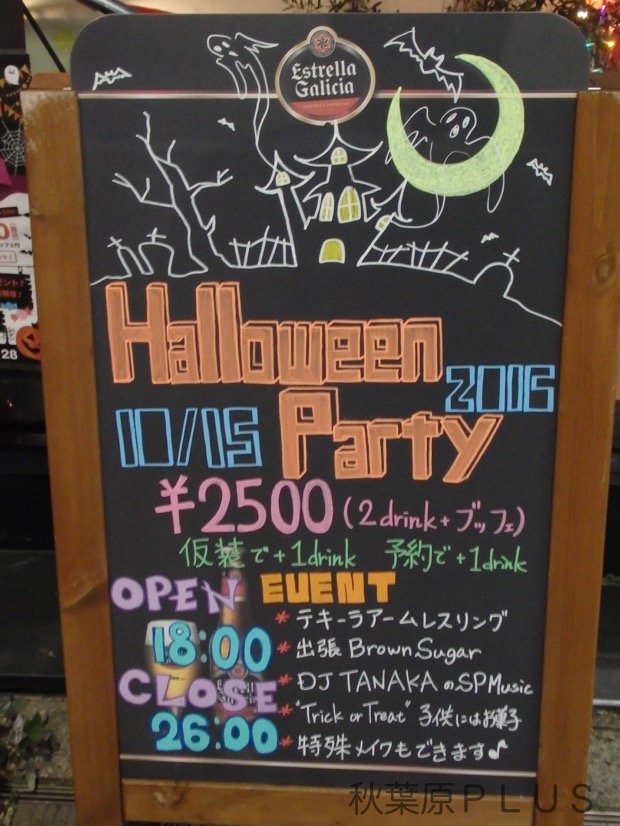 Estrella
Galicia
Halloween
2016
10/15 Party
¥2500 (2drink+ブッフェ)
仮装で+1drink 予約で+1drink
OPEN
18:00
CLOSE
26.00
EVENT
* テキーラアームレスリング
* 出張 Brown Sugar
* DJ TANAKAのSPMusic
* "Trick or Treat" 子供にはお菓子
* 特殊メイクもできます♪
28
秋葉原PLUS